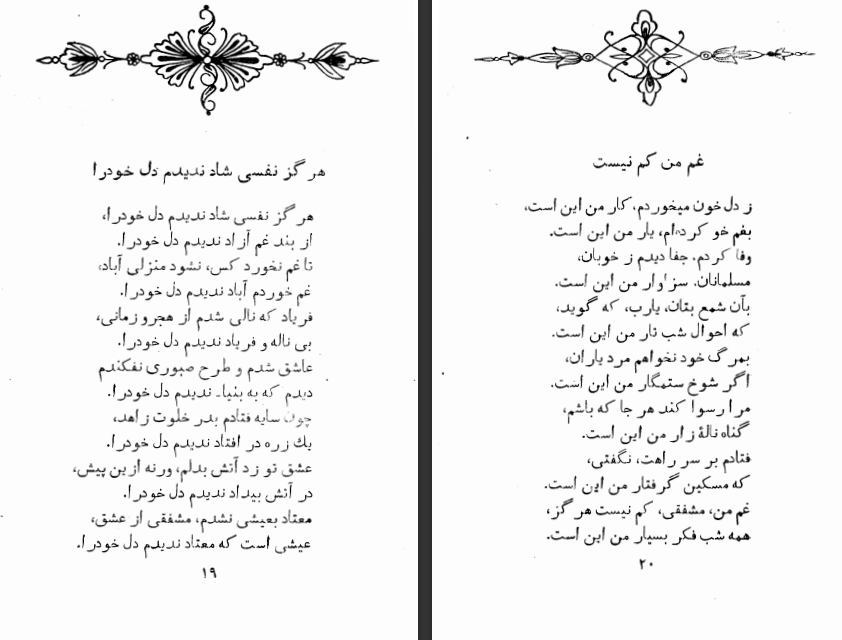 هرگز نفسی شاد ندیدم دل خودرا
هرگز نفسی شاد ندیدم دل خودرا،
از بند غم آزاد ندیدم دل خودرا.
تا غم نخورد کس، نشود منزلی آباد،
غم خوردم آباد ندیدم دل خودرا.
فریاد که نالی شدم از هجرو زمانی،
بی ناله و فریاد ندیدم دل خودرا.
عاشق شدم و طرح صبوری نفکندم
دیدم که به بنیاد ندیدم دل خودرا.
چون سایه فتادم بدر خلوت زاهد،
یك زره در افتاد ندیدم دل خودرا.
عشق تو زد آتش بدلم، ورنه ازین پیش،
در آتش بیداد ندیدم دل خودرا.
معتاد بعیشی نشدم، مشفقی از عشق،
عیشی است که معتاد ندیدم دل خودرا.
۱۹
غم من کم نیست
ز دل خون میخوردم، کار من این است،
بغم خو کرده‌ام، یار من این است.
وفا کردم، جفا دیدم ز خوبان،
مسلمانان، سزاوار من این است.
بآن شمع بتان، یارب، که گوید،
که احوال شب تار من این است.
بمرگ خود نخواهم مرد یاران،
اگر شوخ ستمگار من این است.
مرا رسوا کند هر جا که باشم،
گناه نالهٔ زار من این است.
فتادم بر سر راهت، نگفتی،
که مسکین گرفتار من این است.
غم من، مشفقی، کم نیست هرگز،
همه شب فکر بسیار من این است.
۲۰